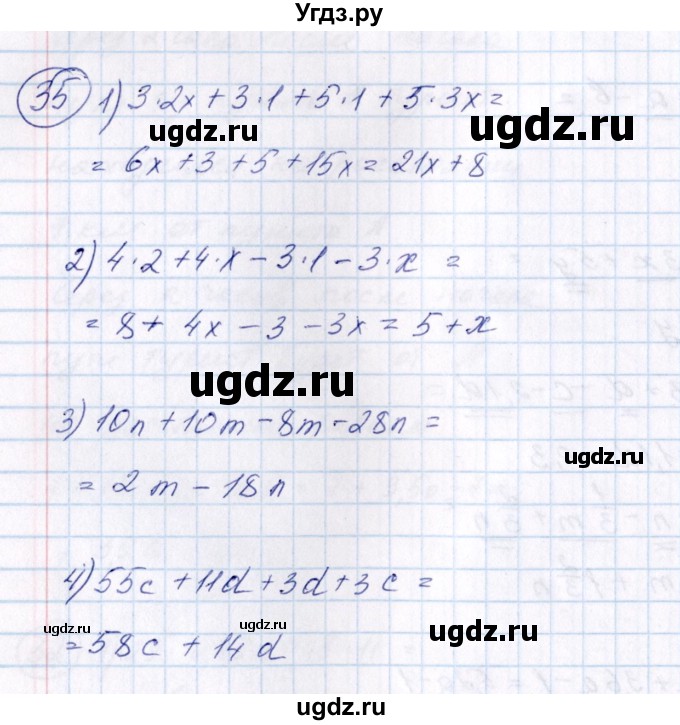 Угдз.ру
35 1) 3·2x + 3·1 + 5·1 + 5·3x =
ugdz.ru ugdz.ru
= 6x + 3 + 5 + 15x = 21x + 8
2) 4·2 + 4·x − 3·1 − 3·x =
= 8 + 4x − 3 − 3x = 5 + x
ugdz.ru
3) 10n + 10m − 8m − 28n =
ugdz.ru
= 2m − 18n
4) 55c + 11d + 3d + 3c =
ugdz.ru ugdz.ru ugdz.ru
= 58c + 14d
ugdz.ru